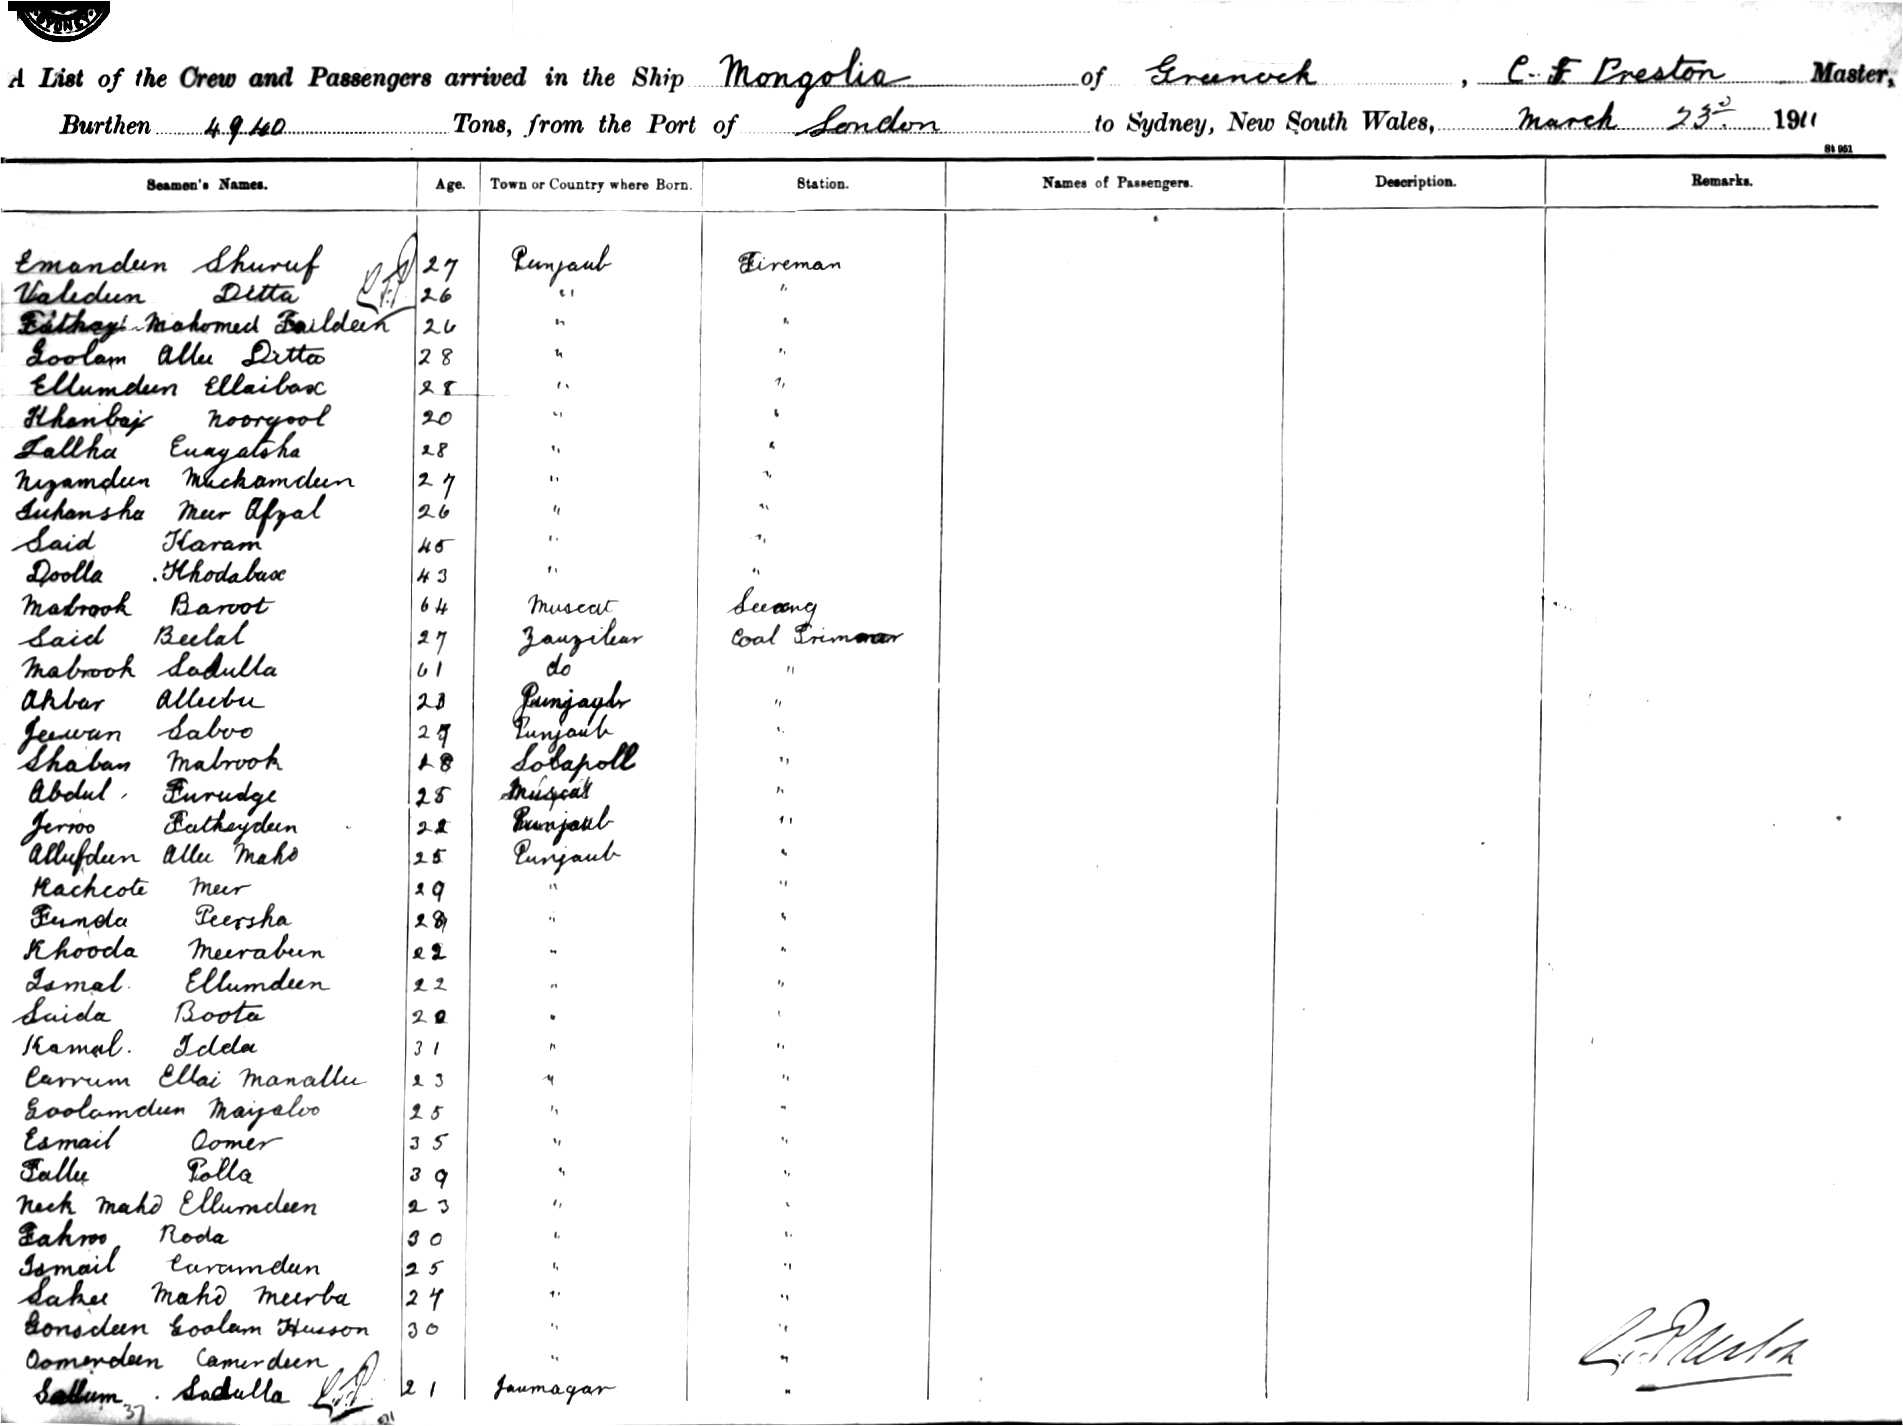 SYDNEY
A List of the Crew and Passengers arrived in the Ship Mongolia of Greenock, C. F Preston Master,
Burthen 4940 Tons, from the Port of London to Sydney, New South Wales, March 23d 1911
St 951
Seamen's Names. Age. Town or Country where Born. Station. Names of Passengers. Description. Remarks.
Emandeen Shuruf 27 Punjaub Fireman
Valedeen Ditta 26 " "
Fathay Mahomed Faildeen 26 " "
Goolam Allee Ditta 28 " "
Ellumdeen Ellaibax 28 " "
Khanbaj Noorgool 20 " "
Lallha Enayatsha 28 " "
Nizamdeen Muckamdeen 27 " "
Meer Afzal 26 " "
Said Karam 45 " "
Doolla Khodabux 43 " "
Mabrook Baroot 64 Muscat
Said Beelal 27 Zanzibar Coal Trimmer
Mabrook Sadulla 61 do "
Akbar Alleebu 23 Punjaub "
Jeewan Saboo 27 Punjaub "
Shaban Mabrook 28 "
Abdul Furudge 25 Muscat "
Jerroo Fatheydeen 22 Punjaub "
Allufdeen Allee Mahd 25 Punjaub "
Kachcote Meer 29 " "
Funda Peersha 28 " "
Khooda Meerabeen 22 " "
Ismal Ellumdeen 22 " "
Saida Boota 20 " "
Kamal. Idda 31 " "
Carrum Ellai Manallee 23 " "
Goolamdeen Mayaloo 25 " "
Esmail Oomer 35 " "
Fallee Polla 39 " "
Neck Mahd Ellumdeen 23 " "
Fakroo Roda 30 " "
Ismail Caramdeen 25 " "
Sakee Mahd Meerba 24 " "
Gonsdeen Goolam Husson 30 " "
Oomerdeen Camerdeen " "
Sallum Sadulla 21 Jaumagar "
C. F. Preston
37